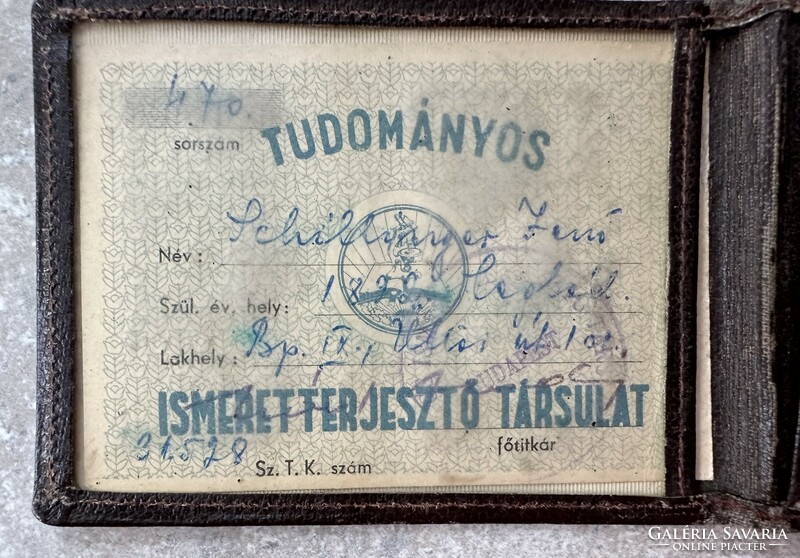 470.
sorszám
TUDOMÁNYOS
Név: Jenő
Szül. év. hely: Cegléd.
Lakhely: Bp. IX., Üllői út
BUDAPEST
ISMERETTERJESZTŐ TÁRSULAT
31.528
Sz. T. K. szám
főtitkár
GALÉRIA SAVARIA
ONLINE PIACTÉR